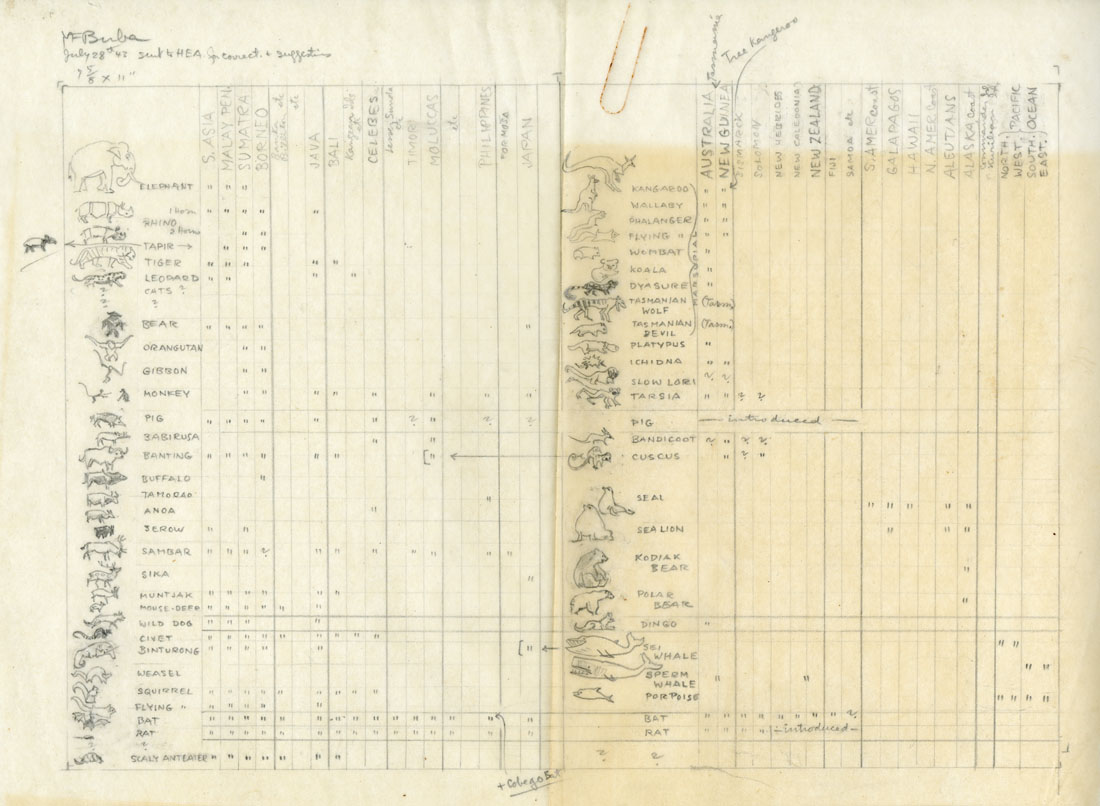 July 28th 43 sent to HEA for correct. + suggestions
7 5/8 x 11"
Tasmania
Tree Kangaroo
S. ASIA
MALAY PEN.
SUMATRA
BORNEO
JAVA
BALI
CELEBES
TIMOR
MOLUCCAS
etc
PHILIPPINES
FORMOSA
JAPAN
AUSTRALIA
NEW GUINEA
BISMARCK
SOLOMON
NEW HEBRIDES
NEW CALEDONIA
NEW ZEALAND
FIJI
SAMOA etc
S. AMER coast
GALAPAGOS
HAWAII
N. AMER coast
ALEUTIANS
ALASKA coast
NORTH
WEST
SOUTH
EAST
PACIFIC
OCEAN
ELEPHANT
1 Horn
RHINO
2 Horn
TAPIR →
TIGER
LEOPARD
CATS ?
?
BEAR
ORANGUTAN
GIBBON
MONKEY
PIG
BABIRUSA
BANTING
BUFFALO
TAMORAO
ANOA
SEROW
SAMBAR
SIKA
MUNTJAK
MOUSE-DEER
WILD DOG
CIVET
BINTURONG
WEASEL
SQUIRREL
FLYING "
BAT
RAT
?
SCALY ANTEATER
+ Cobego
KANGAROO
WALLABY
PHALANGER
FLYING "
WOMBAT
KOALA
DYASURE
MARSUPIAL
TASMANIAN WOLF (Tasm)
TASMANIAN DEVIL (Tasm)
PLATYPUS
ICHIDNA
SLOW LORI ? ?
TARSIA " " ? ?
PIG — introduced —
BANDICOOT ? " ? ?
CUSCUS " ? "
SEAL
SEA LION
KODIAK BEAR
POLAR BEAR
DINGO
SEI WHALE
SPERM WHALE
PORPOISE
BAT
RAT " " " " -introduced-
? ?